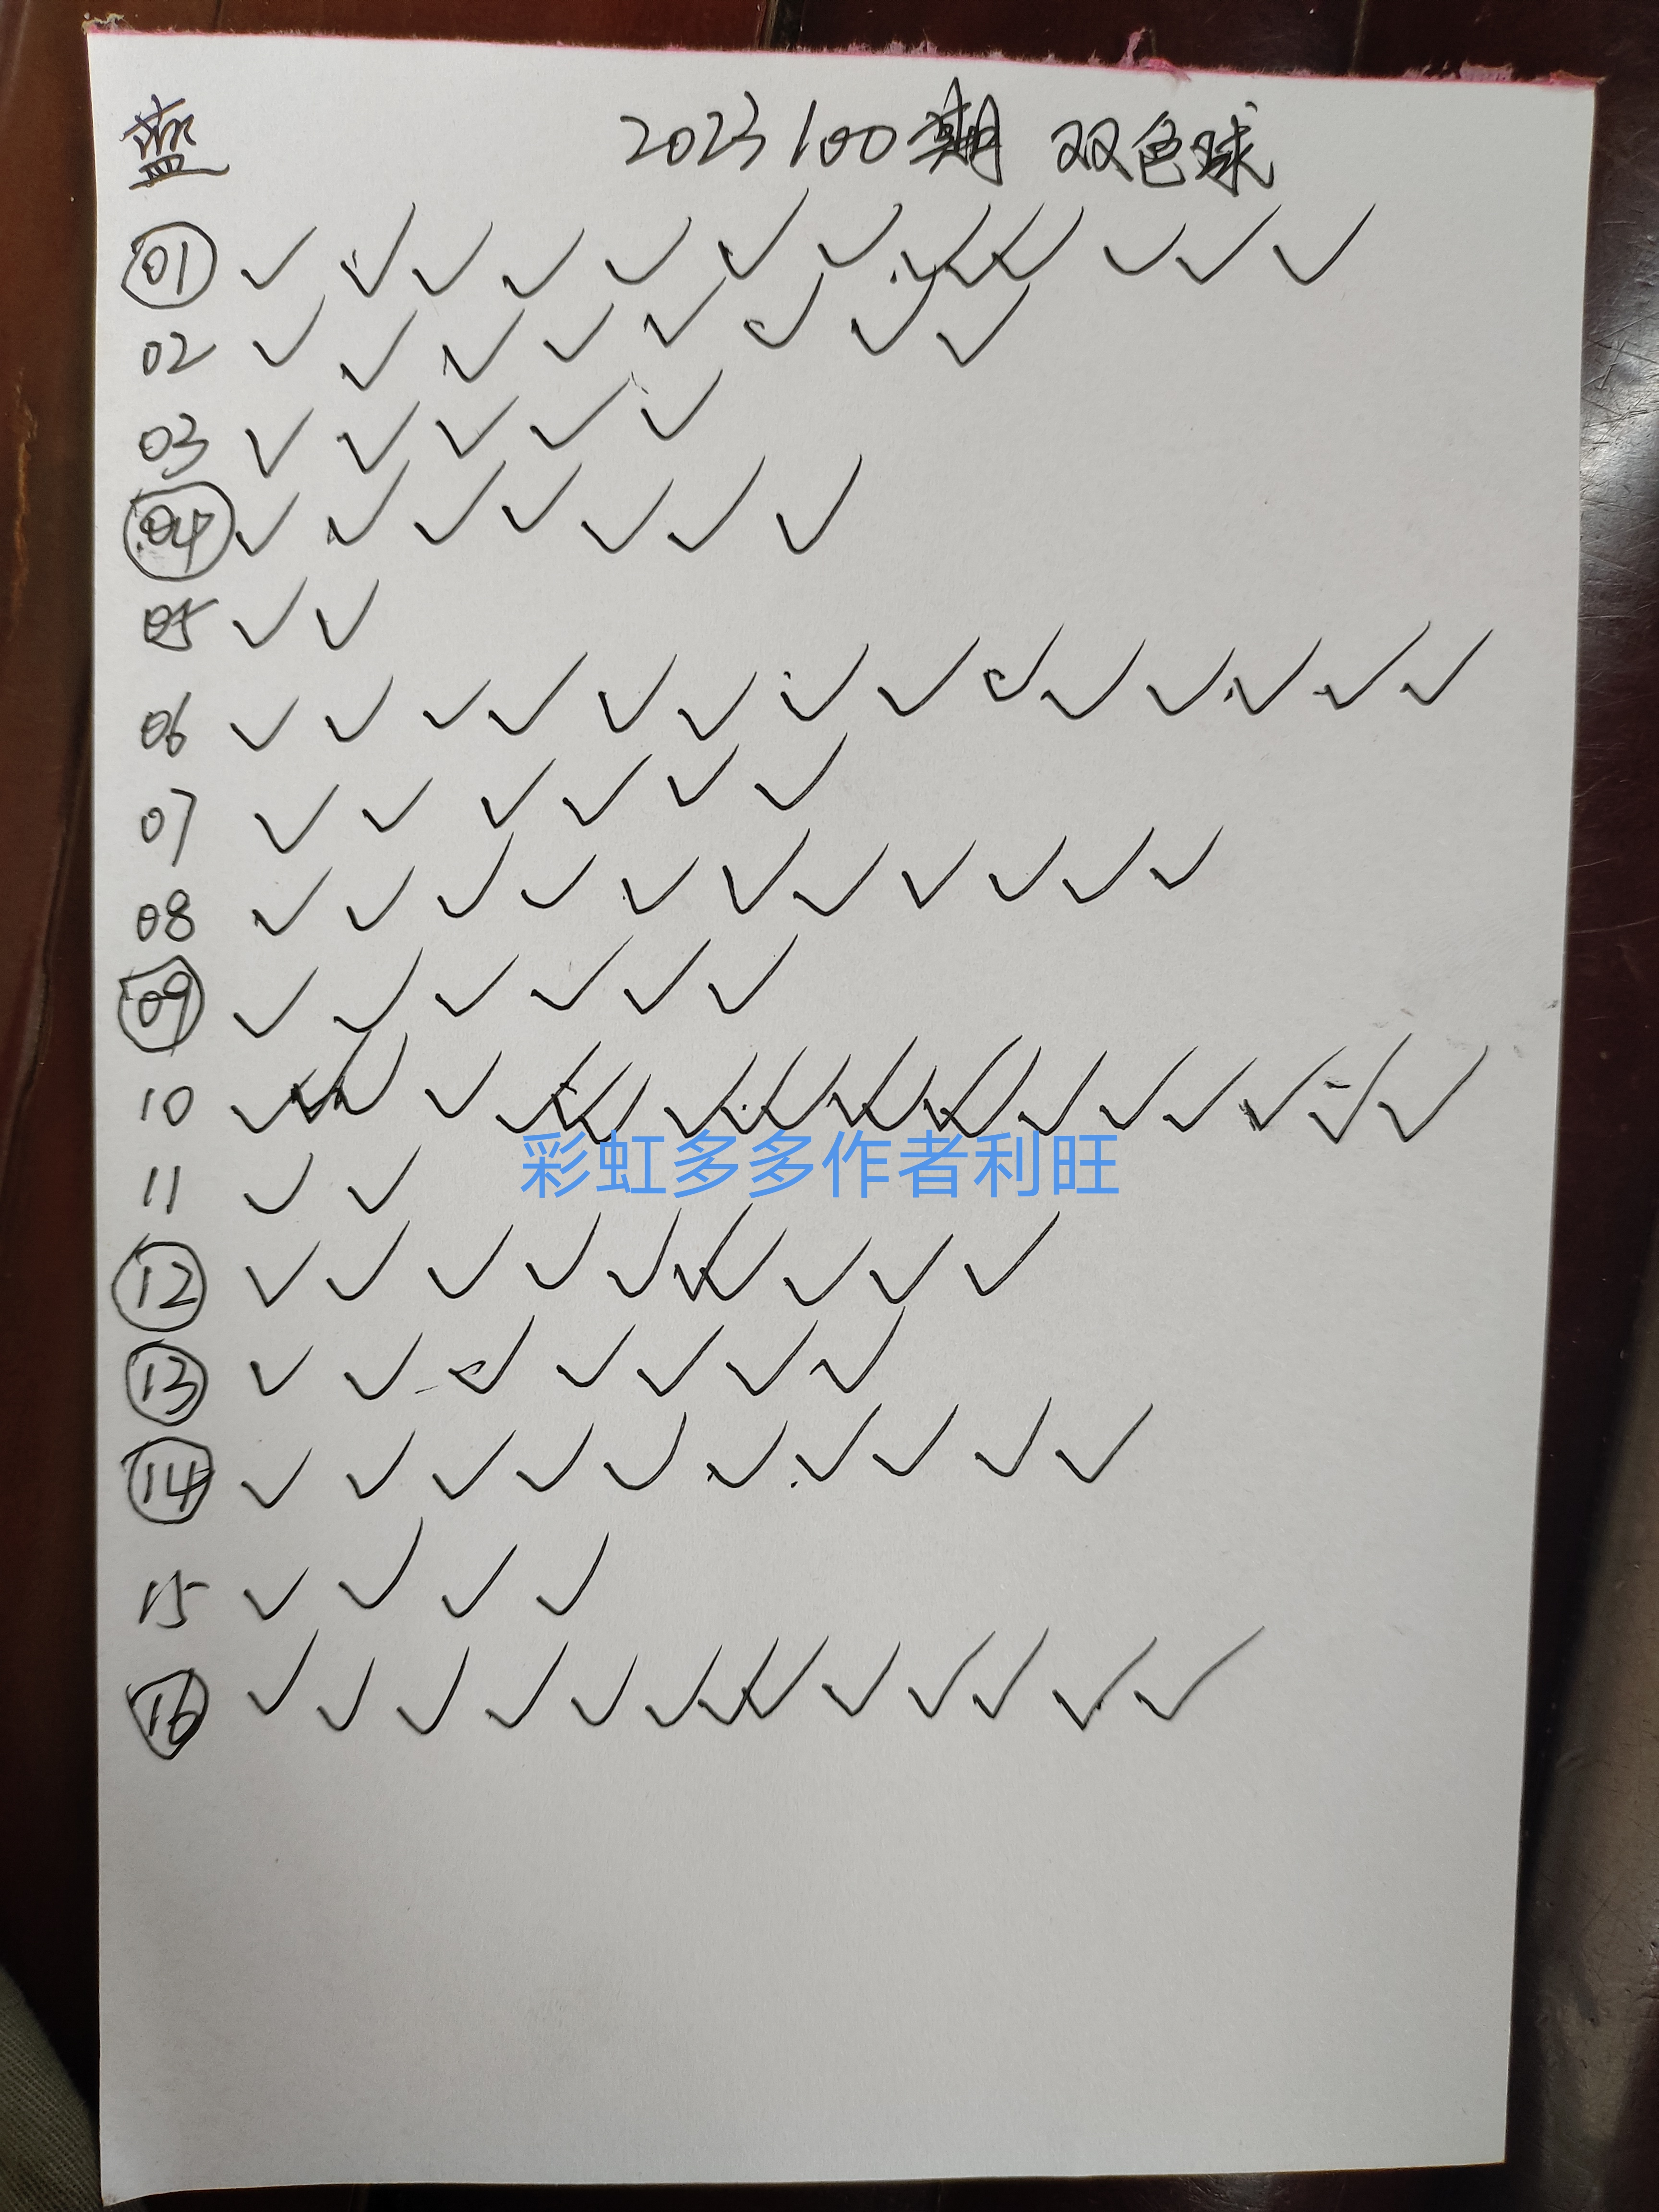 蓝 2023100期 双色球
01 ✓ ✓ ✓ ✓ ✓ ✓ ✓ ✓ ✓ ✓ ✓ ✓ ✓
02 ✓ ✓ ✓ ✓ ✓ ✓ ✓ ✓
03 ✓ ✓ ✓ ✓ ✓
04 ✓ ✓ ✓ ✓ ✓ ✓ ✓
05 ✓ ✓
06 ✓ ✓ ✓ ✓ ✓ ✓ ✓ ✓ ✓ ✓ ✓ ✓ ✓ ✓
07 ✓ ✓ ✓ ✓ ✓ ✓
08 ✓ ✓ ✓ ✓ ✓ ✓ ✓ ✓ ✓ ✓ ✓
09 ✓ ✓ ✓ ✓ ✓ ✓
10 ✓ ✓ ✓ ✓ ✓ ✓ ✓ ✓ ✓ ✓ ✓ ✓ ✓ ✓ ✓ ✓ ✓
彩虹多多作者利旺
11 ✓ ✓
12 ✓ ✓ ✓ ✓ ✓ ✓ ✓ ✓ ✓ ✓
13 ✓ ✓ ✓ ✓ ✓ ✓ ✓
14 ✓ ✓ ✓ ✓ ✓ ✓ ✓ ✓ ✓ ✓
15 ✓ ✓ ✓ ✓
16 ✓ ✓ ✓ ✓ ✓ ✓ ✓ ✓ ✓ ✓ ✓ ✓ ✓